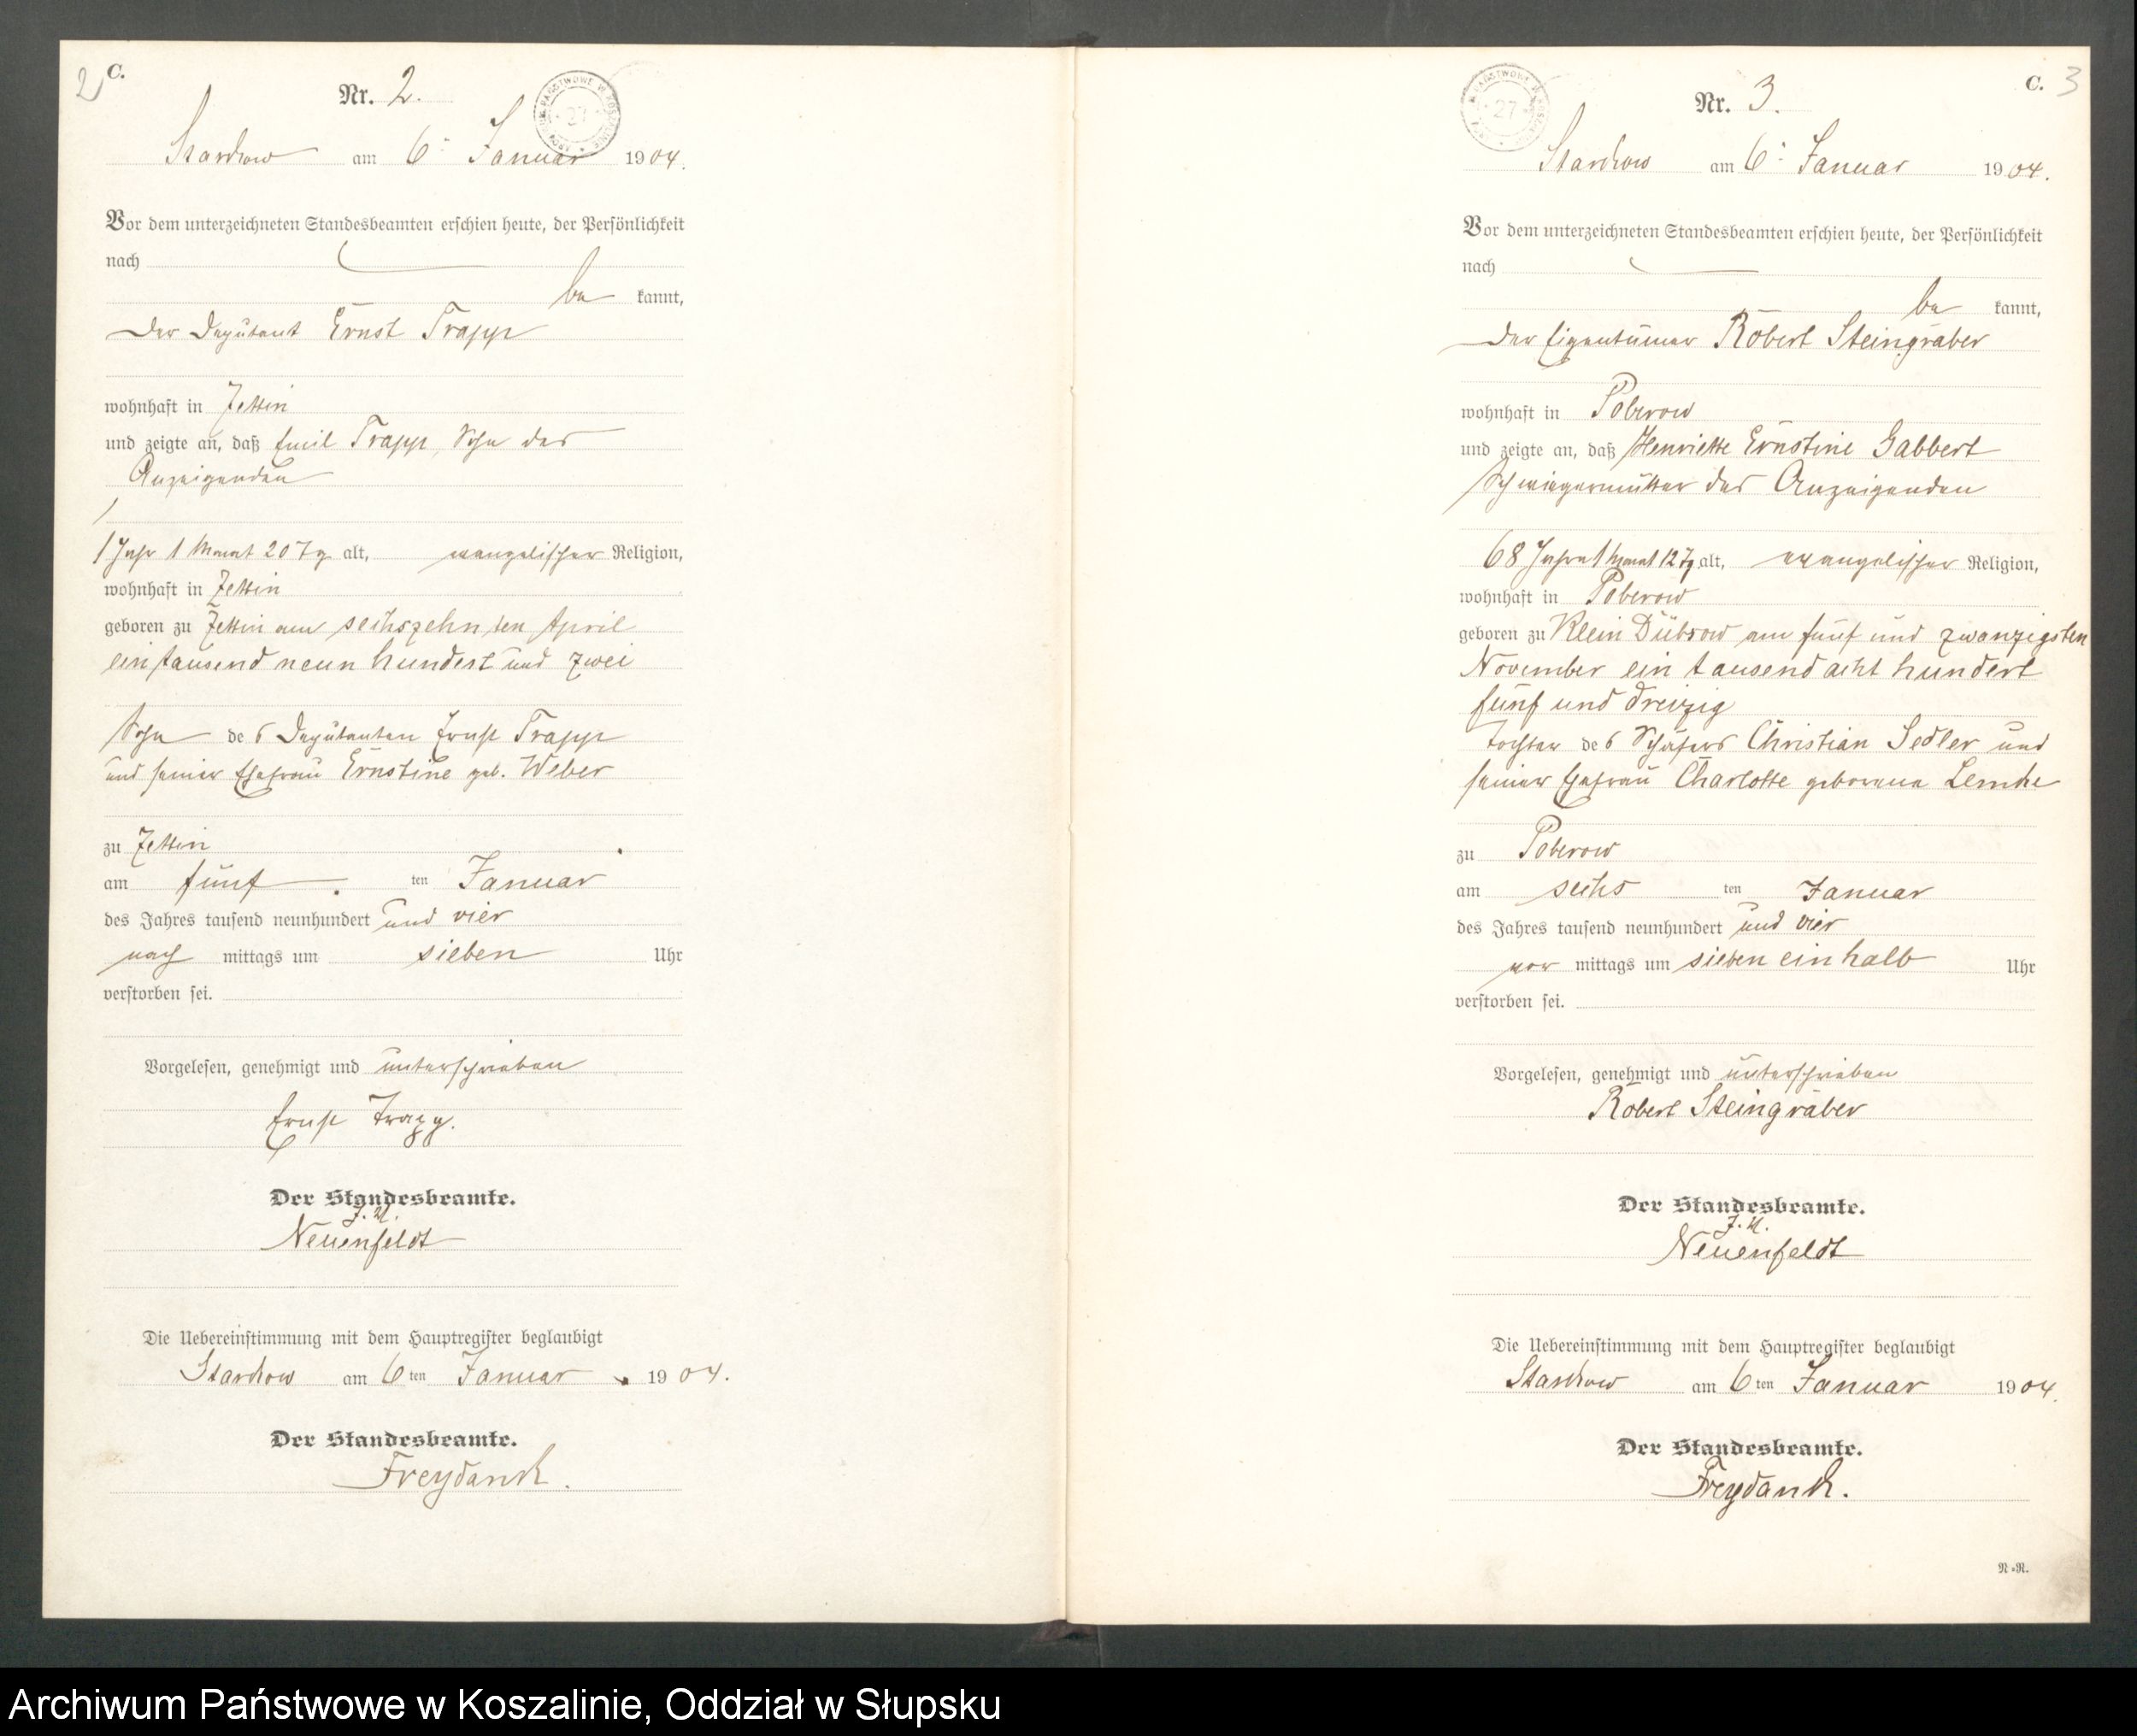 2
C.
Nr. 2.
Starckow am 6. Januar 1904.
Vor dem unterzeichneten Standesbeamten erschien heute, der Persönlichkeit
nach
be kannt,
der Deputant Ernst Trapp
wohnhaft in Zettin
und zeigte an, daß Emil Trapp, Sohn des
Anzeigenden
1 Jahr 1 Monat 20 Tg alt, evangelischer Religion,
wohnhaft in Zettin
geboren zu Zettin am sechszehnten April
eintausend neun hundert und zwei
Sohn des Deputanten Ernst Trapp
und seiner Ehefrau Ernstine geb. Weber
zu Zettin
am fünf ten Januar
des Jahres tausend neunhundert und vier
nach mittags um sieben Uhr
verstorben sei.
Vorgelesen, genehmigt und unterschrieben
Ernst Trapp.
Der Standesbeamte.
Neuenfeldt
Die Uebereinstimmung mit dem Hauptregister beglaubigt
Starckow am 6ten Januar 1904.
Der Standesbeamte.
Freydank.
C. 3
Nr. 3.
Starckow am 6. Januar 1904.
Vor dem unterzeichneten Standesbeamten erschien heute, der Persönlichkeit
nach
be kannt,
der Eigentümer Robert Steingräber
wohnhaft in Poberow
und zeigte an, daß Henriette Ernstine Gabbert
Schwiegermutter des Anzeigenden
68 Jahre 1 Monat 12 Tg alt, evangelischer Religion,
wohnhaft in Poberow
geboren zu Klein Dübsow am fünf und zwanzigsten
November ein tausend acht hundert
fünf und dreizig
Tochter des Schäfers Christian Sedler und
seiner Ehefrau Charlotte geborene Lemke
zu Poberow
am sechs ten Januar
des Jahres tausend neunhundert und vier
vor mittags um sieben ein halb Uhr
verstorben sei.
Vorgelesen, genehmigt und unterschrieben
Robert Steingräber
Der Standesbeamte.
Neuenfeldt
Die Uebereinstimmung mit dem Hauptregister beglaubigt
Starckow am 6ten Januar 1904.
Der Standesbeamte.
Freydank.
N.=R.
Archiwum Państwowe w Koszalinie, Oddział w Słupsku